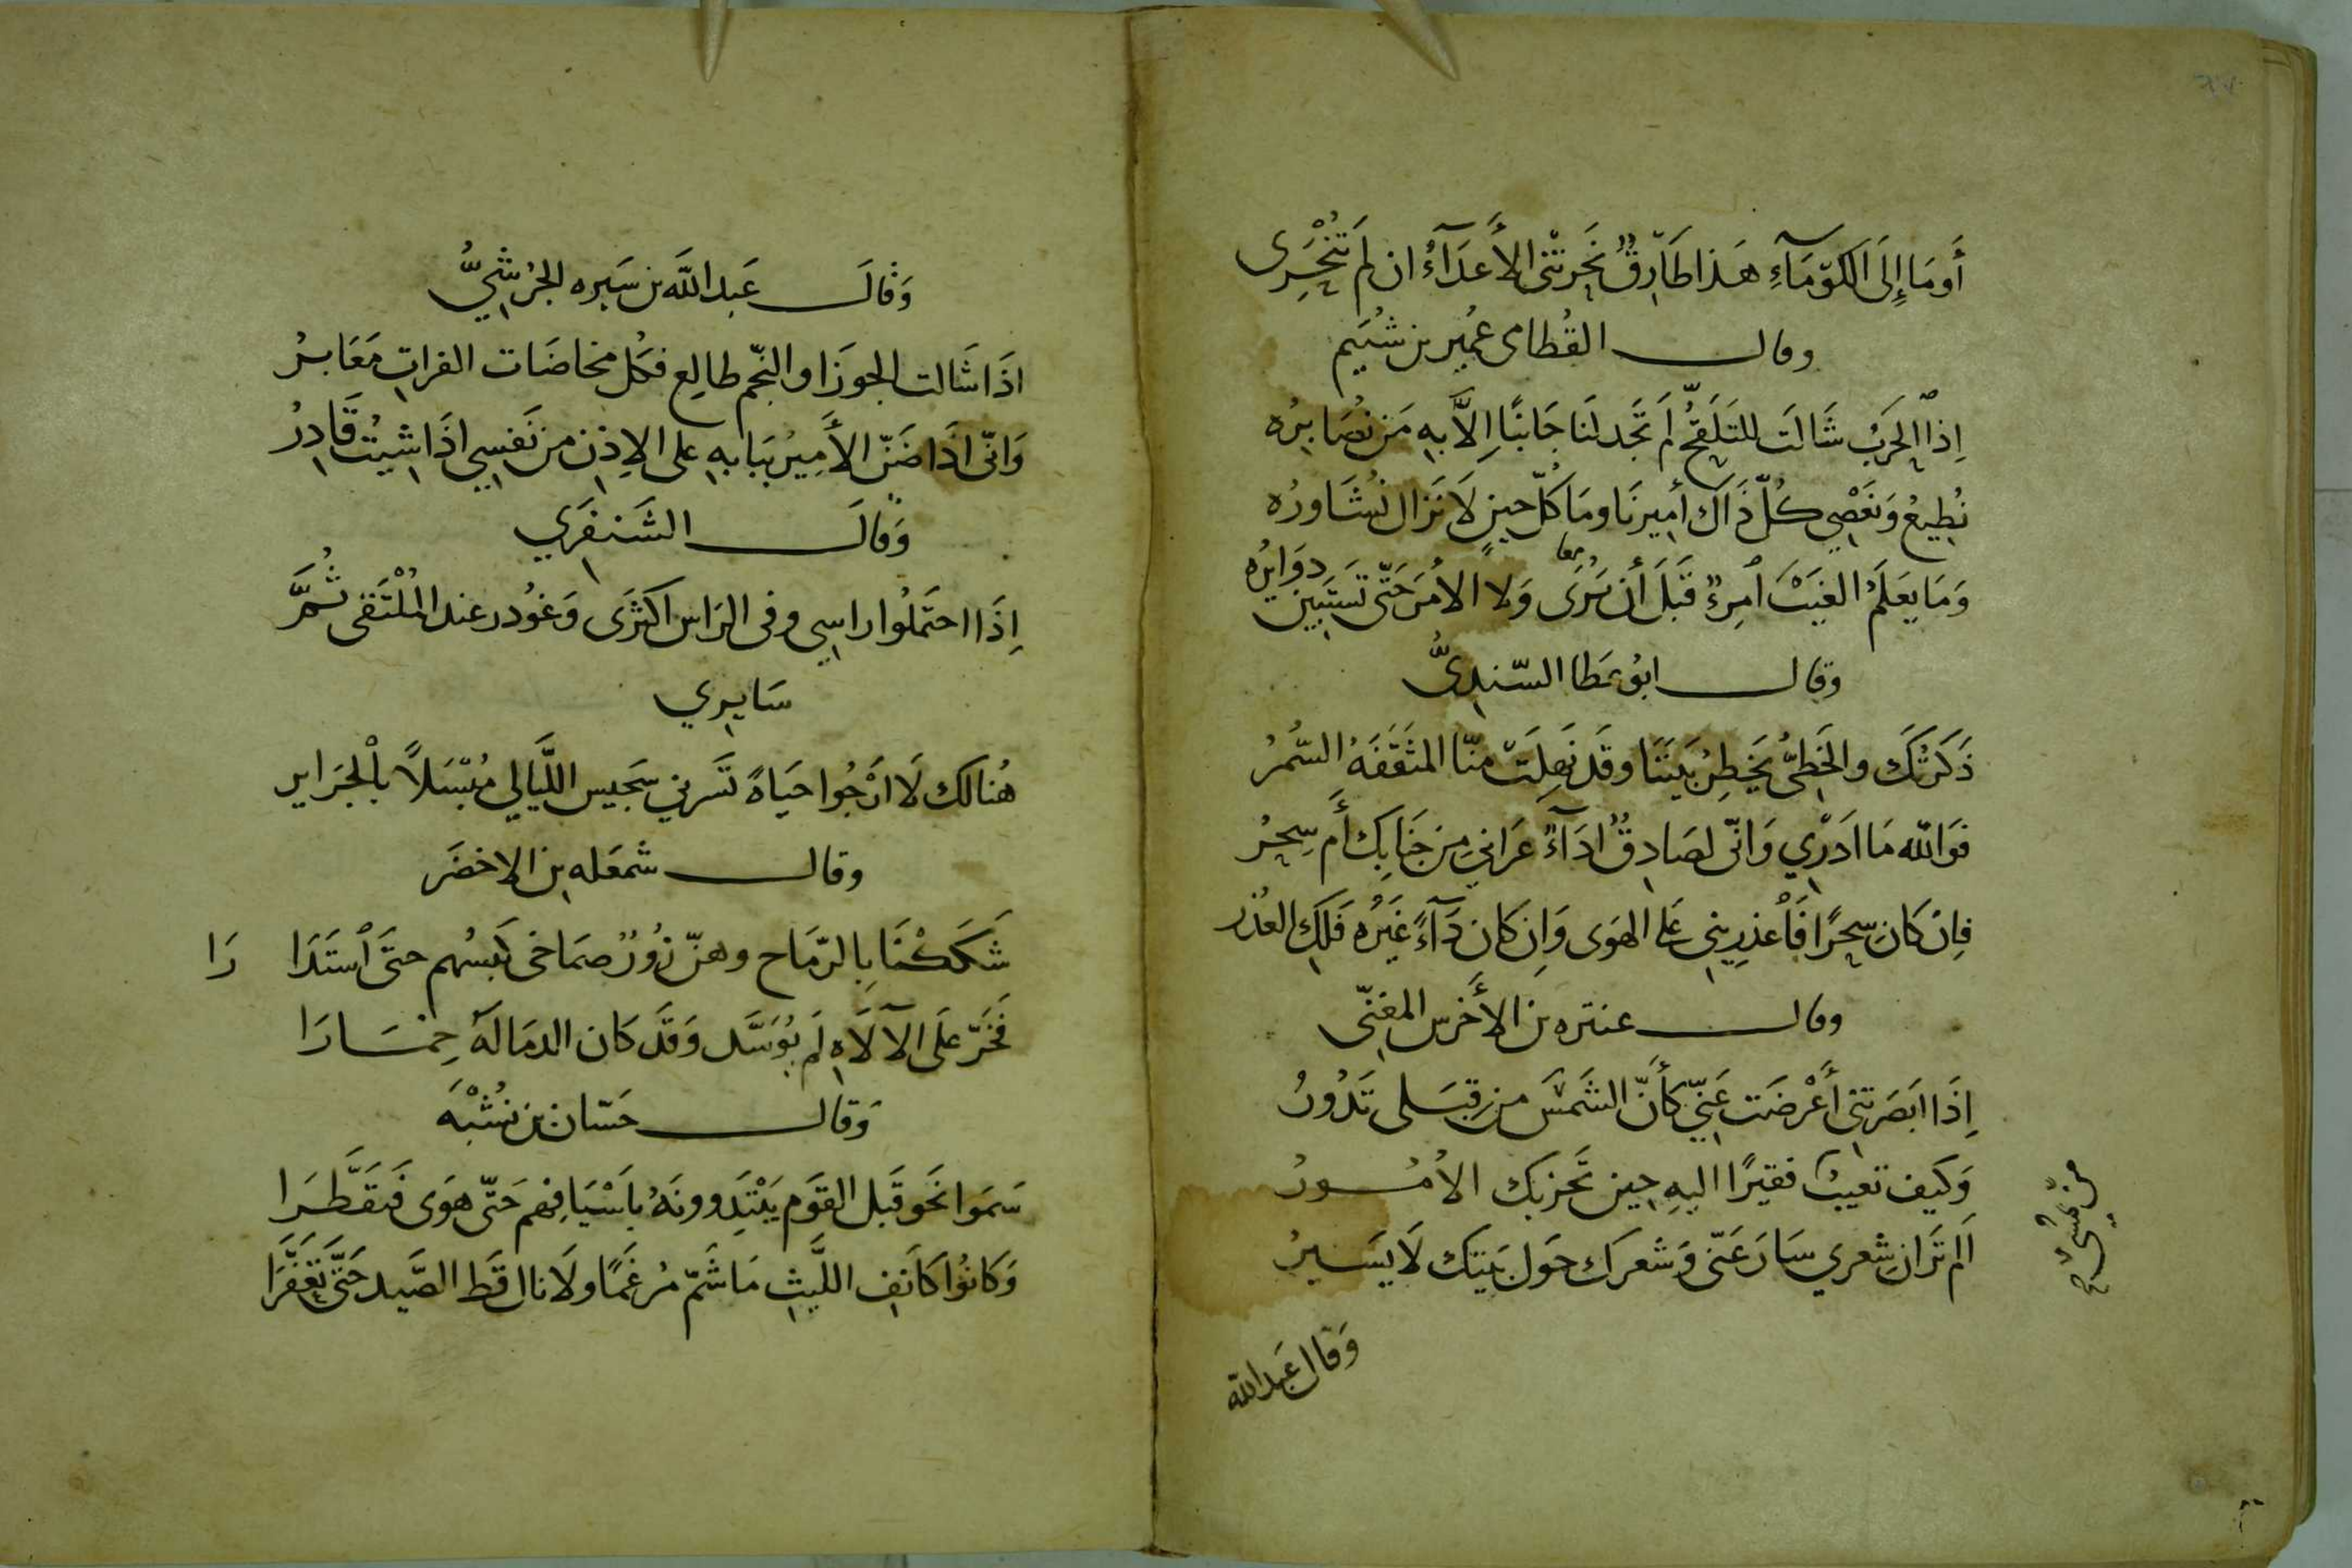 أَومَا إِلَى الكَوْمَآءِ هَذا طَارِقٌ نَحَرَتْنِي الأَعدَآءُ ان لَم تُنْحَرِي
وقال القُطامى عُمير بن شُيَيم
إِذا الحَربُ شَالَت للتَلَقُّحِ لَم تَجَد لنَا جَانبًا إِلاَّ بهِ مَن نُصَابِرُه
نُطِيعُ وَنَعْصِي كُلّ ذَاكَ أمِيرنَا ومَا كُلّ حِينٍ لَا نَزَال نُشَاورُه
وَمَا يعَلَمُ الغَيْبَ ٱمرِءٌ قَبلَ أن يَرَى وَلا الأمْرَ حَتّى تَستَبِين دوَايرُه
معا
وقال ابُو عَطا السّندِىُّ
ذَكَرتُكِ والخَطِىُّ يَخطِرُ بَيننَا وقَد نَهِلَت منّا المثَقَّفَهُ السُّمرُ
فوَاللّه مَا ادَرْي وَانّى لصَادِقٌ ادَآءٌ عَرَاني مِن جَنَابِكِ أَم سِحرُ
فإن كَان سِحرًا فَاْعذرِيني عَلى الهَوى وَإن كَان دَآءً غَيرَه فَلكِ العُذر
وقال عنتره بن الأَخرس المعنّى
إِذَا ابَصَرتنِي أَعْرضَت عَنِّي كأَنّ الشَمْسَ من قِبَلى تَدُورُ
وَكيف تعيبُ فقيرًا اليهِ حِين تَحزبك الأُمُورُ
الَم تَرَان شِعري سَارَ عَنّى وَشعرَك حَول بَيتك لَا يسَيرُ
وَقال عَبد اللّه
وَقالَ عَبد اللَّه بن سَبره الجُرَشيُّ
اذَا شَالت الجوزَا والنّجم طالِع فكلّ مخاضَات الفراتِ مَعَابرُ
وَانّى اذَا ضَنّ الأَمِيرُ ببَابهِ على الاِذن من نَفسِي اذَا شِيتُ قَادِرُ
وَقالَ الشَنفَري
إِذَا احتَملُوا راسِي وفى الرَاس اكثرَى وَغُودر عند المُلْتَقى ثُمَّ
سَايِري
هُنالك لَا ارْجُوا حيَاةً تَسَرني سَجيس اللَّيَالي مُبسَلاً بالجَراير
وقال شمعَله بن الاخضَر
شَكَكْنَا بِالرّمَاح وهنّ زُورٌ صمَاخى كبسهم حتَى ٱستَدَا رَا
فَخَرّ عَلَى الآلَاَهِ لَم يُوَسَّد وَقَد كَان الدمَا لَهُ خِمَارَا
وَقال حَسّان بن نُشْبَه
سَمَوا نَحَو قَبل القَوم يَبْتَدِرونَهُ بأَسْيَافِهم حَتّى هوَى فتقَطَّرَا
وَكانُوا كَانَفِ اللَّيثِ مَا شَمّ مُرغَمًا ولَا ناال قَط الصَّيد حَتَّى تَعَفَّرَا